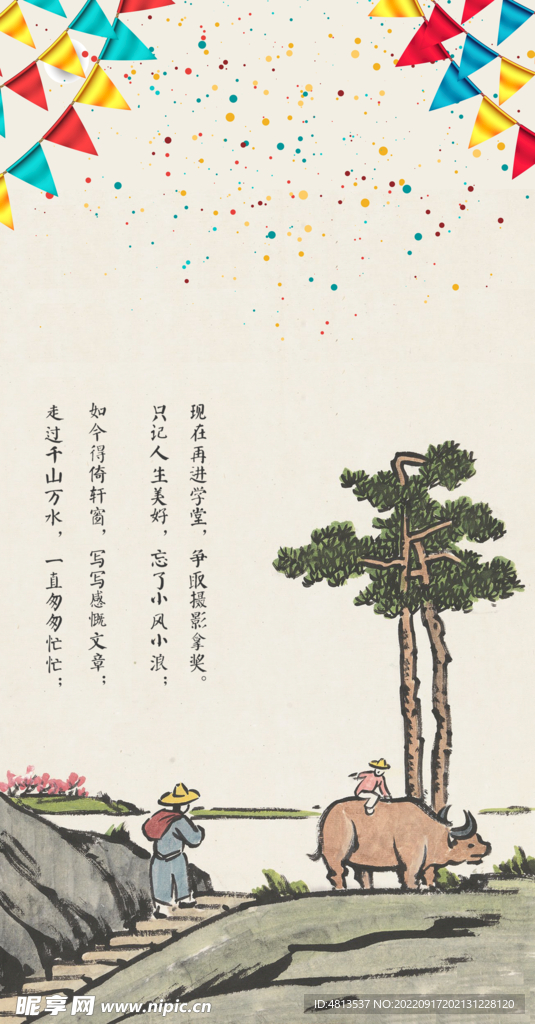 走过千山万水，一直匆匆忙忙；
如今得倚轩窗，写写感慨文章；
只记人生美好，忘了小风小浪；
现在再进学堂，争取摄影拿奖。
昵享网 www.nipic.cn
ID:4813537 NO:20220917202131228120